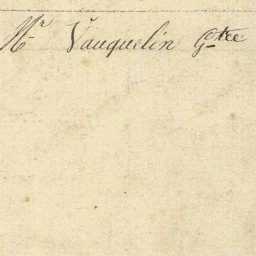 Mr Vauquelin Gtee